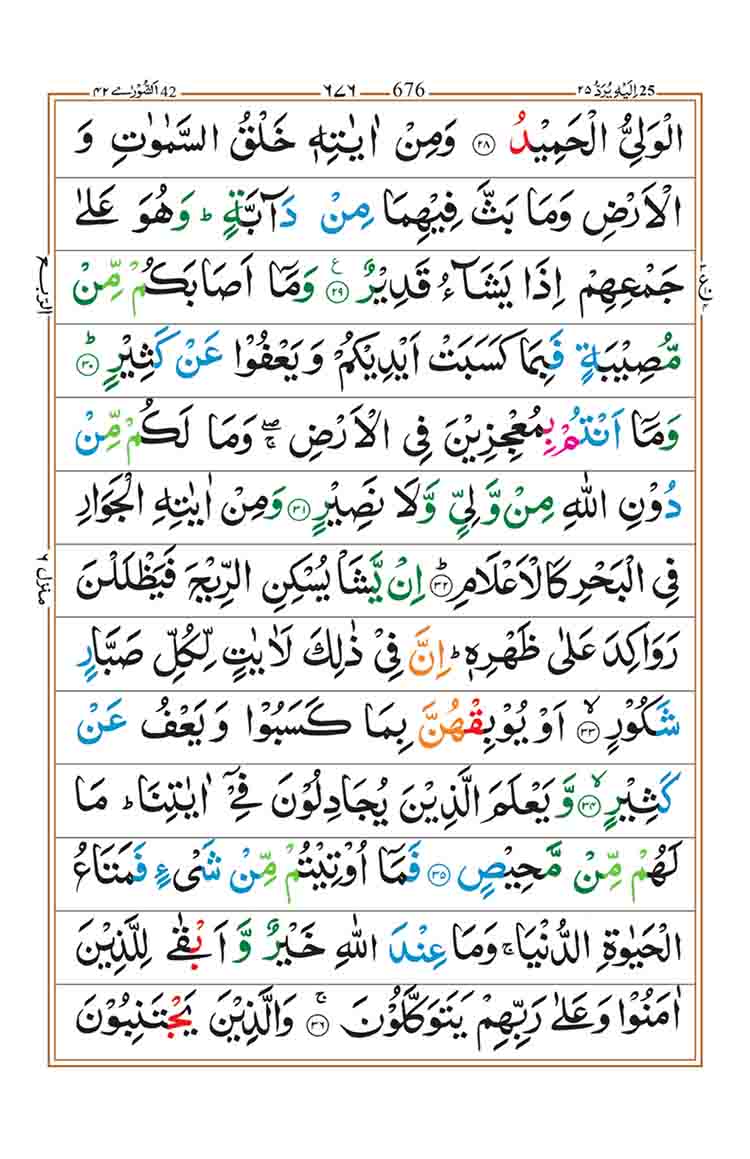 ٤٢ اَلشُّوْرٰے 42 ٦٧٦ 676 ٢٥ اِلَیْهِ یُرَدُّ 25
الْوَلِیُّ الْحَمِیْدُ ۲۸ وَمِنْ اٰیٰتِهٖ خَلْقُ السَّمٰوٰتِ وَ
الْاَرْضِ وَمَا بَثَّ فِیْهِمَا مِنْ دَآبَّةٍ ؕ وَهُوَ عَلٰی
جَمْعِهِمْ اِذَا یَشَآءُ قَدِیْرٌ ۲۹ وَمَاۤ اَصَابَكُمْ مِّنْ
مُّصِیْبَةٍ فَبِمَا كَسَبَتْ اَیْدِیْكُمْ وَیَعْفُوْا عَنْ كَثِیْرٍ ؕ ۳۰
وَمَاۤ اَنْتُمْ بِمُعْجِزِیْنَ فِی الْاَرْضِ ۖۚ وَمَا لَكُمْ مِّنْ
دُوْنِ اللّٰهِ مِنْ وَّلِیٍّ وَّلَا نَصِیْرٍ ۳۱ وَمِنْ اٰیٰتِهِ الْجَوَارِ
فِی الْبَحْرِ كَالْاَعْلَامِ ؕ ۳۲ اِنْ یَّشَاْ یُسْكِنِ الرِّیْحَ فَیَظْلَلْنَ
رَوَاكِدَ عَلٰی ظَهْرِهٖ ؕ اِنَّ فِیْ ذٰلِكَ لَاٰیٰتٍ لِّكُلِّ صَبَّارٍ
شَكُوْرٍ ۙ ۳۳ اَوْ یُوْبِقْهُنَّ بِمَا كَسَبُوْا وَیَعْفُ عَنْ
كَثِیْرٍ ۙ ۳۴ وَّیَعْلَمَ الَّذِیْنَ یُجَادِلُوْنَ فِیْۤ اٰیٰتِنَا ؕ مَا
لَهُمْ مِّنْ مَّحِیْصٍ ۳۵ فَمَاۤ اُوْتِیْتُمْ مِّنْ شَیْءٍ فَمَتَاعُ
الْحَیٰوةِ الدُّنْیَا ۚ وَمَا عِنْدَ اللّٰهِ خَیْرٌ وَّاَبْقٰی لِلَّذِیْنَ
اٰمَنُوْا وَعَلٰی رَبِّهِمْ یَتَوَكَّلُوْنَ ۚ ۳۶ وَالَّذِیْنَ یَجْتَنِبُوْنَ
الرّبع
منزل ٦